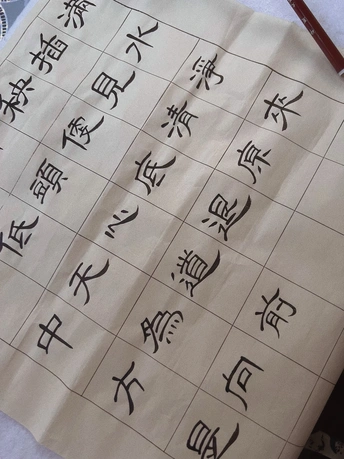 秧插滿
低頭便見水
中天心底清淨
方為道退原來
是向前